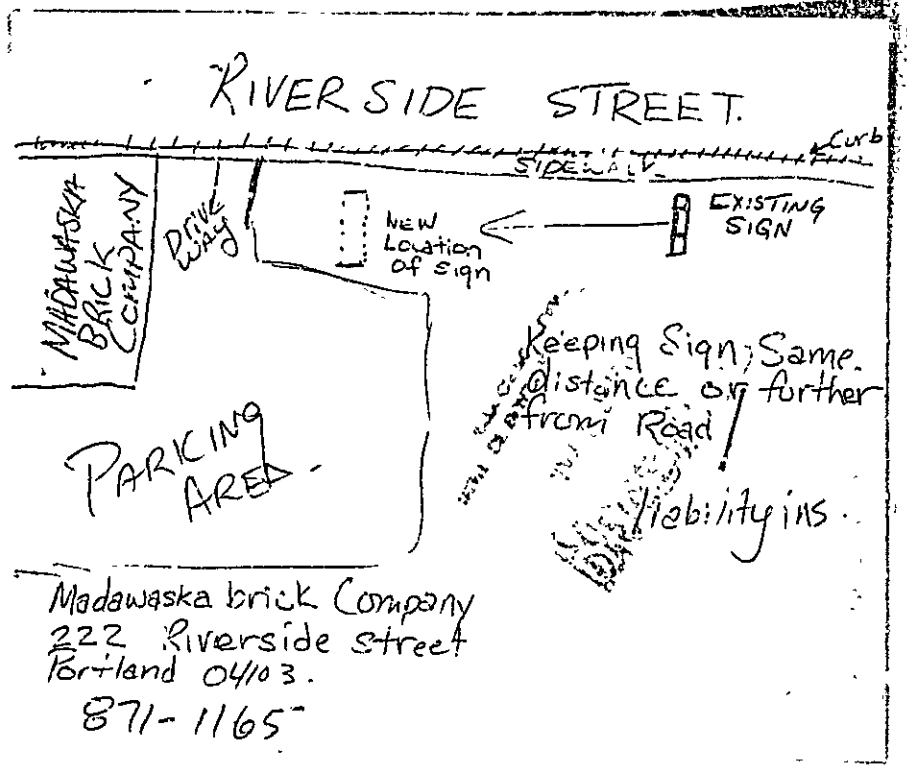 RIVERSIDE STREET.
Curb
SIDEWALK
MADAWASKA
BRICK
COMPANY
Drive
way
NEW
Location
of sign
EXISTING
SIGN
Keeping Sign Same
distance or further
from Road
liability ins.
PARKING
AREA.
Madawaska brick Company
222 Riverside street
Portland 04103.
871-1165